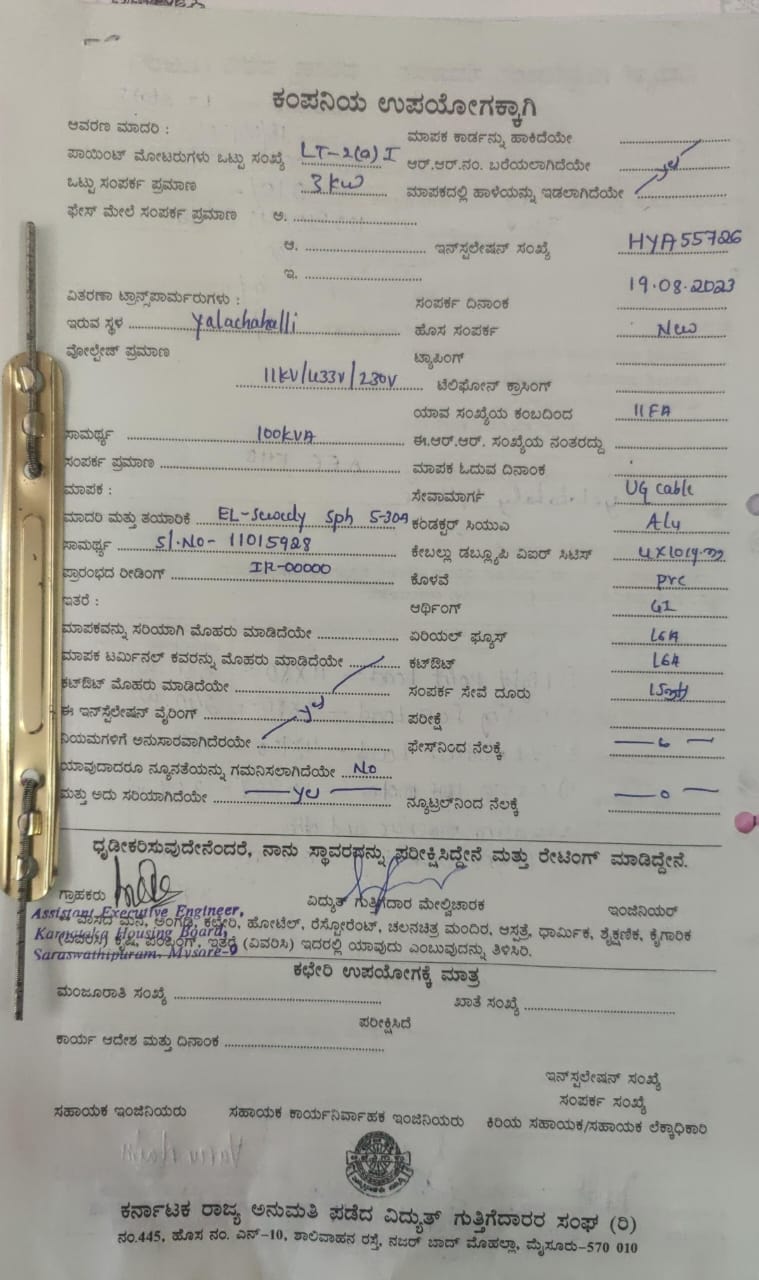 ಕಂಪನಿಯ ಉಪಯೋಗಕ್ಕಾಗಿ
ಆವರಣ ಮಾದರಿ :
ಮಾಪಕ ಕಾರ್ಡನ್ನು ಹಾಕಿದೆಯೇ
ಪಾಯಿಂಟ್ ಮೋಟರುಗಳು ಒಟ್ಟು ಸಂಖ್ಯೆ LT-2(a) I
ಆರ್.ಆರ್.ನಂ. ಬರೆಯಲಾಗಿದೆಯೇ yes
ಒಟ್ಟು ಸಂಪರ್ಕ ಪ್ರಮಾಣ 3 kw
ಮಾಪಕದಲ್ಲಿ ಹಾಳೆಯನ್ನು ಇಡಲಾಗಿದೆಯೇ
ಫೇಸ್ ಮೇಲೆ ಸಂಪರ್ಕ ಪ್ರಮಾಣ ಅ.
ಆ. ಇನ್‌ಸ್ಟಲೇಷನ್ ಸಂಖ್ಯೆ HYA 55726
ಇ.
ವಿತರಣಾ ಟ್ರಾನ್ಸ್‌ಪಾರ್ಮರುಗಳು :
ಸಂಪರ್ಕ ದಿನಾಂಕ 19.08.2023
ಇರುವ ಸ್ಥಳ Yalachahalli
ಹೊಸ ಸಂಪರ್ಕ New
ವೋಲ್ಟೇಜ್ ಪ್ರಮಾಣ 11KV/433V/230V
ಟ್ಯಾಪಿಂಗ್
ಟೆಲಿಫೋನ್ ಕ್ರಾಸಿಂಗ್
ಯಾವ ಸಂಖ್ಯೆಯ ಕಂಬದಿಂದ 11FA
ಸಾಮರ್ಥ್ಯ 100KVA
ಈ.ಆರ್.ಆರ್. ಸಂಖ್ಯೆಯ ನಂತರದ್ದು
ಸಂಪರ್ಕ ಪ್ರಮಾಣ
ಮಾಪಕ ಓದುವ ದಿನಾಂಕ
ಮಾಪಕ :
ಸೇವಾಮಾರ್ಗ UG cable
ಮಾದರಿ ಮತ್ತು ತಯಾರಿಕೆ Sph 5-30A
ಕಂಡಕ್ಟರ್ ಸಿಯುಎ Alu
ಸಾಮರ್ಥ್ಯ Sl.No- 11015928
ಕೇಬಲ್ಲು ಡಬ್ಲ್ಯೂಪಿ ವಿಐರ್ ಸಿಟಿಸ್
ಪ್ರಾರಂಭದ ರೀಡಿಂಗ್ IR-00000
ಕೊಳವೆ PVC
ಇತರೆ :
ಆರ್ಥಿಂಗ್ GI
ಮಾಪಕವನ್ನು ಸರಿಯಾಗಿ ಮೊಹರು ಮಾಡಿದೆಯೇ
ಏರಿಯಲ್ ಫ್ಯೂಸ್ 16A
ಮಾಪಕ ಟರ್ಮಿನಲ್ ಕವರನ್ನು ಮೊಹರು ಮಾಡಿದೆಯೇ
ಕಟ್‌ಔಟ್ 16A
ಕಟ್‌ಔಟ್ ಮೊಹರು ಮಾಡಿದೆಯೇ
ಸಂಪರ್ಕ ಸೇವೆ ದೂರು
ಈ ಇನ್‌ಸ್ಟೆಲೇಷನ್ ವೈರಿಂಗ್ yes
ಪರೀಕ್ಷೆ
ನಿಯಮಗಳಿಗೆ ಅನುಸಾರವಾಗಿದೆರಯೇ
ಫೇಸ್‌ನಿಂದ ನೆಲಕ್ಕೆ
ಯಾವುದಾದರೂ ನ್ಯೂನತೆಯನ್ನು ಗಮನಿಸಲಾಗಿದೆಯೇ No
ಮತ್ತು ಅದು ಸರಿಯಾಗಿದೆಯೇ — yes —
ನ್ಯೂಟ್ರಲ್‌ನಿಂದ ನೆಲಕ್ಕೆ — 0 —
ಧೃಡೀಕರಿಸುವುದೇನೆಂದರೆ, ನಾನು ಸ್ಥಾವರವನ್ನು ಪರೀಕ್ಷಿಸಿದ್ದೇನೆ ಮತ್ತು ರೇಟಿಂಗ್ ಮಾಡಿದ್ದೇನೆ.
ಗ್ರಾಹಕರು ವಿದ್ಯುತ್ ಗುತ್ತಿಗೆದಾರ ಮೇಲ್ವಿಚಾರಕ ಇಂಜಿನಿಯರ್
Assistant Executive Engineer,
ವಾಸದ ಮನೆ, ಅಂಗಡಿ, ಕಛೇರಿ, ಹೋಟೆಲ್, ರೆಸ್ಟೋರೆಂಟ್, ಚಲನಚಿತ್ರ ಮಂದಿರ, ಆಸ್ಪತ್ರೆ, ಧಾರ್ಮಿಕ, ಶೈಕ್ಷಣಿಕ, ಕೈಗಾರಿಕ
Karnataka Housing Board,
(ವಿವರಿಸಿ) ಕೃಷಿ, ಪಂಪಿಂಗ್, ಇತರೆ (ವಿವರಿಸಿ) ಇದರಲ್ಲಿ ಯಾವುದು ಎಂಬುವುದನ್ನು ತಿಳಿಸಿರಿ.
Saraswathipuram, Mysore-9
ಕಛೇರಿ ಉಪಯೋಗಕ್ಕೆ ಮಾತ್ರ
ಮಂಜೂರಾತಿ ಸಂಖ್ಯೆ ಖಾತೆ ಸಂಖ್ಯೆ
ಪರೀಕ್ಷಿಸಿದೆ
ಕಾರ್ಯ ಆದೇಶ ಮತ್ತು ದಿನಾಂಕ
ಇನ್‌ಸ್ಟಲೇಷನ್ ಸಂಖ್ಯೆ
ಸಂಪರ್ಕ ಸಂಖ್ಯೆ
ಸಹಾಯಕ ಇಂಜಿನಿಯರು ಸಹಾಯಕ ಕಾರ್ಯನಿರ್ವಾಹಕ ಇಂಜಿನಿಯರು ಕಿರಿಯ ಸಹಾಯಕ/ಸಹಾಯಕ ಲೆಕ್ಕಾಧಿಕಾರಿ
ಕರ್ನಾಟಕ ರಾಜ್ಯ ಅನುಮತಿ ಪಡೆದ ವಿದ್ಯುತ್ ಗುತ್ತಿಗೆದಾರರ ಸಂಘ (ರಿ)
ನಂ.445, ಹೊಸ ನಂ. ಎನ್-10, ಶಾಲಿವಾಹನ ರಸ್ತೆ, ನಜರ್ ಬಾದ್ ಮೊಹಲ್ಲಾ, ಮೈಸೂರು-570 010